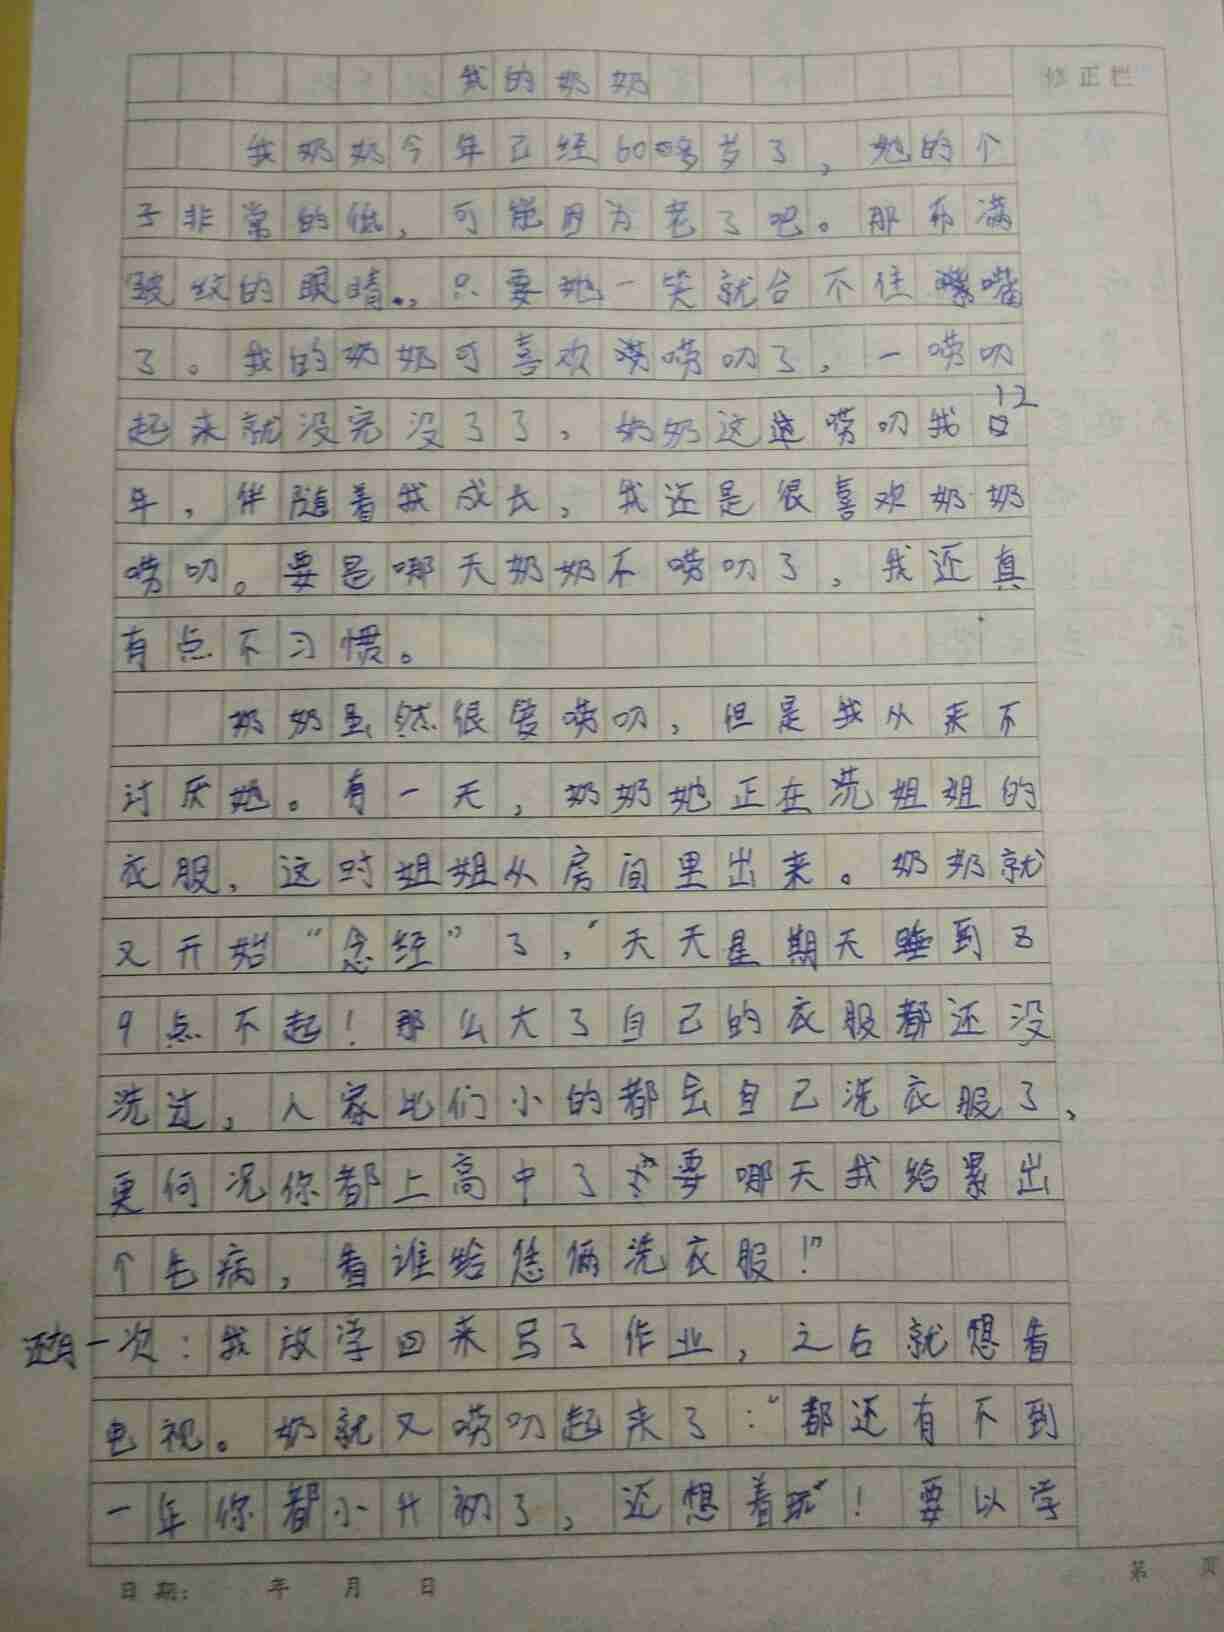 我的奶奶
修正栏
我奶奶今年已经60多岁了，她的个
子非常的低，可能因为老了吧。那布满
皱纹的眼睛，只要她一笑就合不住嘴
了。我的奶奶可喜欢唠叨了，一唠叨
起来就没完没了了，奶奶这唠叨我12
年，伴随着我成长，我还是很喜欢奶奶
唠叨。要是哪天奶奶不唠叨了，我还真
有点不习惯。
奶奶虽然很爱唠叨，但是我从来不
讨厌她。有一天，奶奶她正在洗姐姐的
衣服，这时姐姐从房间里出来。奶奶就
又开始“念经”了，“天天星期天睡到8
9点不起！那么大了自己的衣服都还没
洗过，人家比们小的都会自己洗衣服了，
更何况你都上高中了，要哪天我给累出
个毛病，看谁给您俩洗衣服！”
还有一次：我放学回来写了作业，之后就想看
电视。奶就又唠叨起来了：“都还有不到
一年你都小升初了，还想着玩”！要以学
日期： 年 月 日
第 页